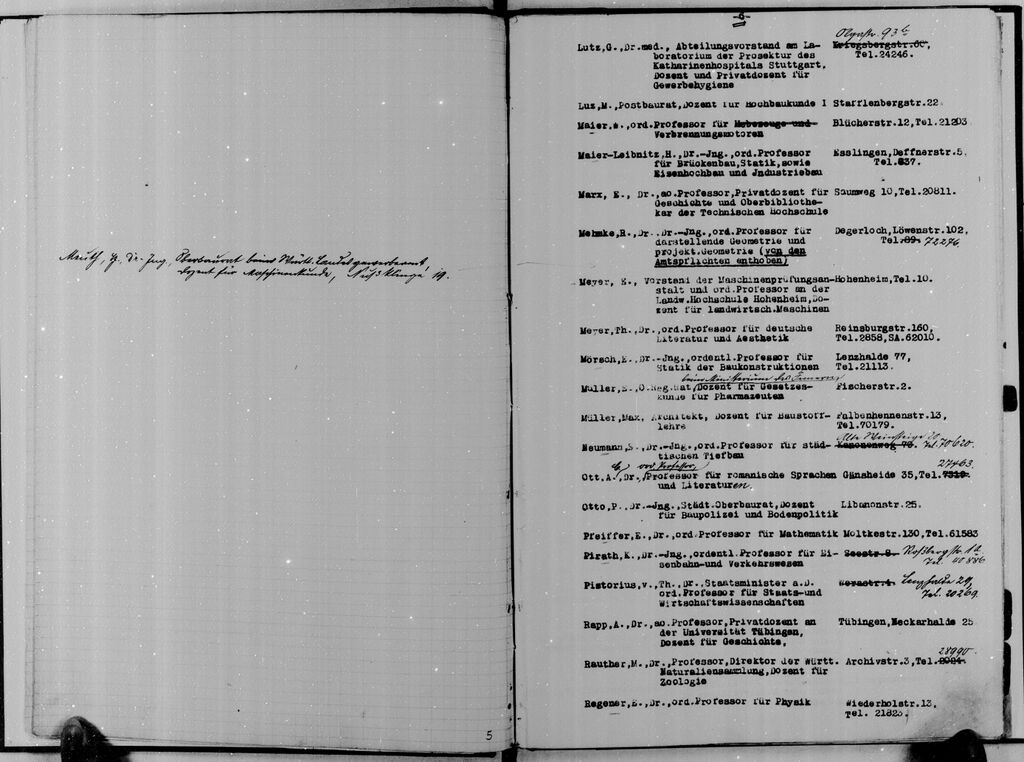 Mauth, H. Dr. Jng, Oberbaurat beim Württ. Landesgewerbeamt,
Dozent für Maschinenkunde,
5
-6-
Olgastr. 93b
Lutz,G.,Dr.med., Abteilungsvorstand am La- Kriegsbergstr.60,
boratorium der Prosektur des Tel.24246.
Katharinenhospitals Stuttgart,
Dozent und Privatdozent für
Gewerbehygiene
Luz,M.,Postbaurat,Dozent für Hochbaukunde I Stafflenbergstr.22
Maier, ,ord.Professor für Hebezeuge und Blücherstr.12,Tel.21203
Verbrennungsmotoren
Maier-Leibnitz,H.,Dr.-Jng,ord.Professor Esslingen,Deffnerstr.5,
für Brückenbau,Statik,sowie Tel.837.
Eisenhochbau und Jndustriebau
Marx, E., Dr.,ao.Professor,Privatdozent für Saumweg 10,Tel.20811.
Geschichte und Oberbibliothe-
kar der Technischen Hochschule
Mehmke,R.,Dr.,Dr.-Jng.,ord.Professor für Degerloch,Löwenstr.102,
darstellende Geometrie und Tel.89. 72276
projekt.Geometrie (von den
Amtspflichten enthoben)
Meyer, E., Vorstand der Maschinenprüfungsan-Hohenheim,Tel.10.
stalt und ord.Professor an der
Landw.Hochschule Hohenheim,Do-
zent für landwirtsch.Maschinen
Meyer,Th.,Dr.,ord.Professor für deutsche Reinsburgstr.160,
Literatur und Aesthetik Tel.2858,SA.62010.
Mörsch,E.,Dr.-Jng.,ordentl.Professor für Lenzhalde 77,
Statik der Baukonstruktionen Tel.21113.
beim Ministerium des Innern
Müller,E.,O.Reg.Rat,Dozent für Gesetzes- Fischerstr.2.
kunde für Pharmazeuten
Müller,Max, Architekt, Dozent für Baustoff- Falbenhennenstr.13,
lehre Tel.70179.
Alte Weinsteige
Neumann,E.,Dr.-Jng.,ord.Professor für städ- Kanonenweg 70. Tel.70620.
tischen Tiefbau
ord. Professor 27463.
Ott,A.,Dr.,Professor für romanische Sprachen Gänsheide 35,Tel.7319.
und Literaturen,
Otto,P.,Dr.-Jng.,Städt.Oberbaurat,Dozent Libanonstr.25.
für Baupolizei und Bodenpolitik
Pfeiffer,E.,Dr.,ord.Professor für Mathematik Moltkestr.130,Tel.61583
Pirath,K.,Dr.-Jng.,ordentl.Professor für Ei- Seestr.8. Roßbergstr.1
senbahn-und Verkehrswesen Tel. 40886
Pistorius,v.,Th.,Dr.,Staatsminister a.D. Werastr.4. Lenzhalde 29,
ord.Professor für Staats-und Tel. 20269.
Wirtschaftswissenschaften
Rapp,A.,Dr.,ao.Professor,Privatdozent an Tübingen,Neckarhalde 25
der Universität Tübingen,
Dozent für Geschichte,
28990.
Rauther,M.,Dr.,Professor,Direktor der Württ. Archivstr.3,Tel.
Naturaliensammlung,Dozent für
Zoologie
Regener,E.,Dr.,ord.Professor für Physik Wiederholstr.13,
Tel. 21823.